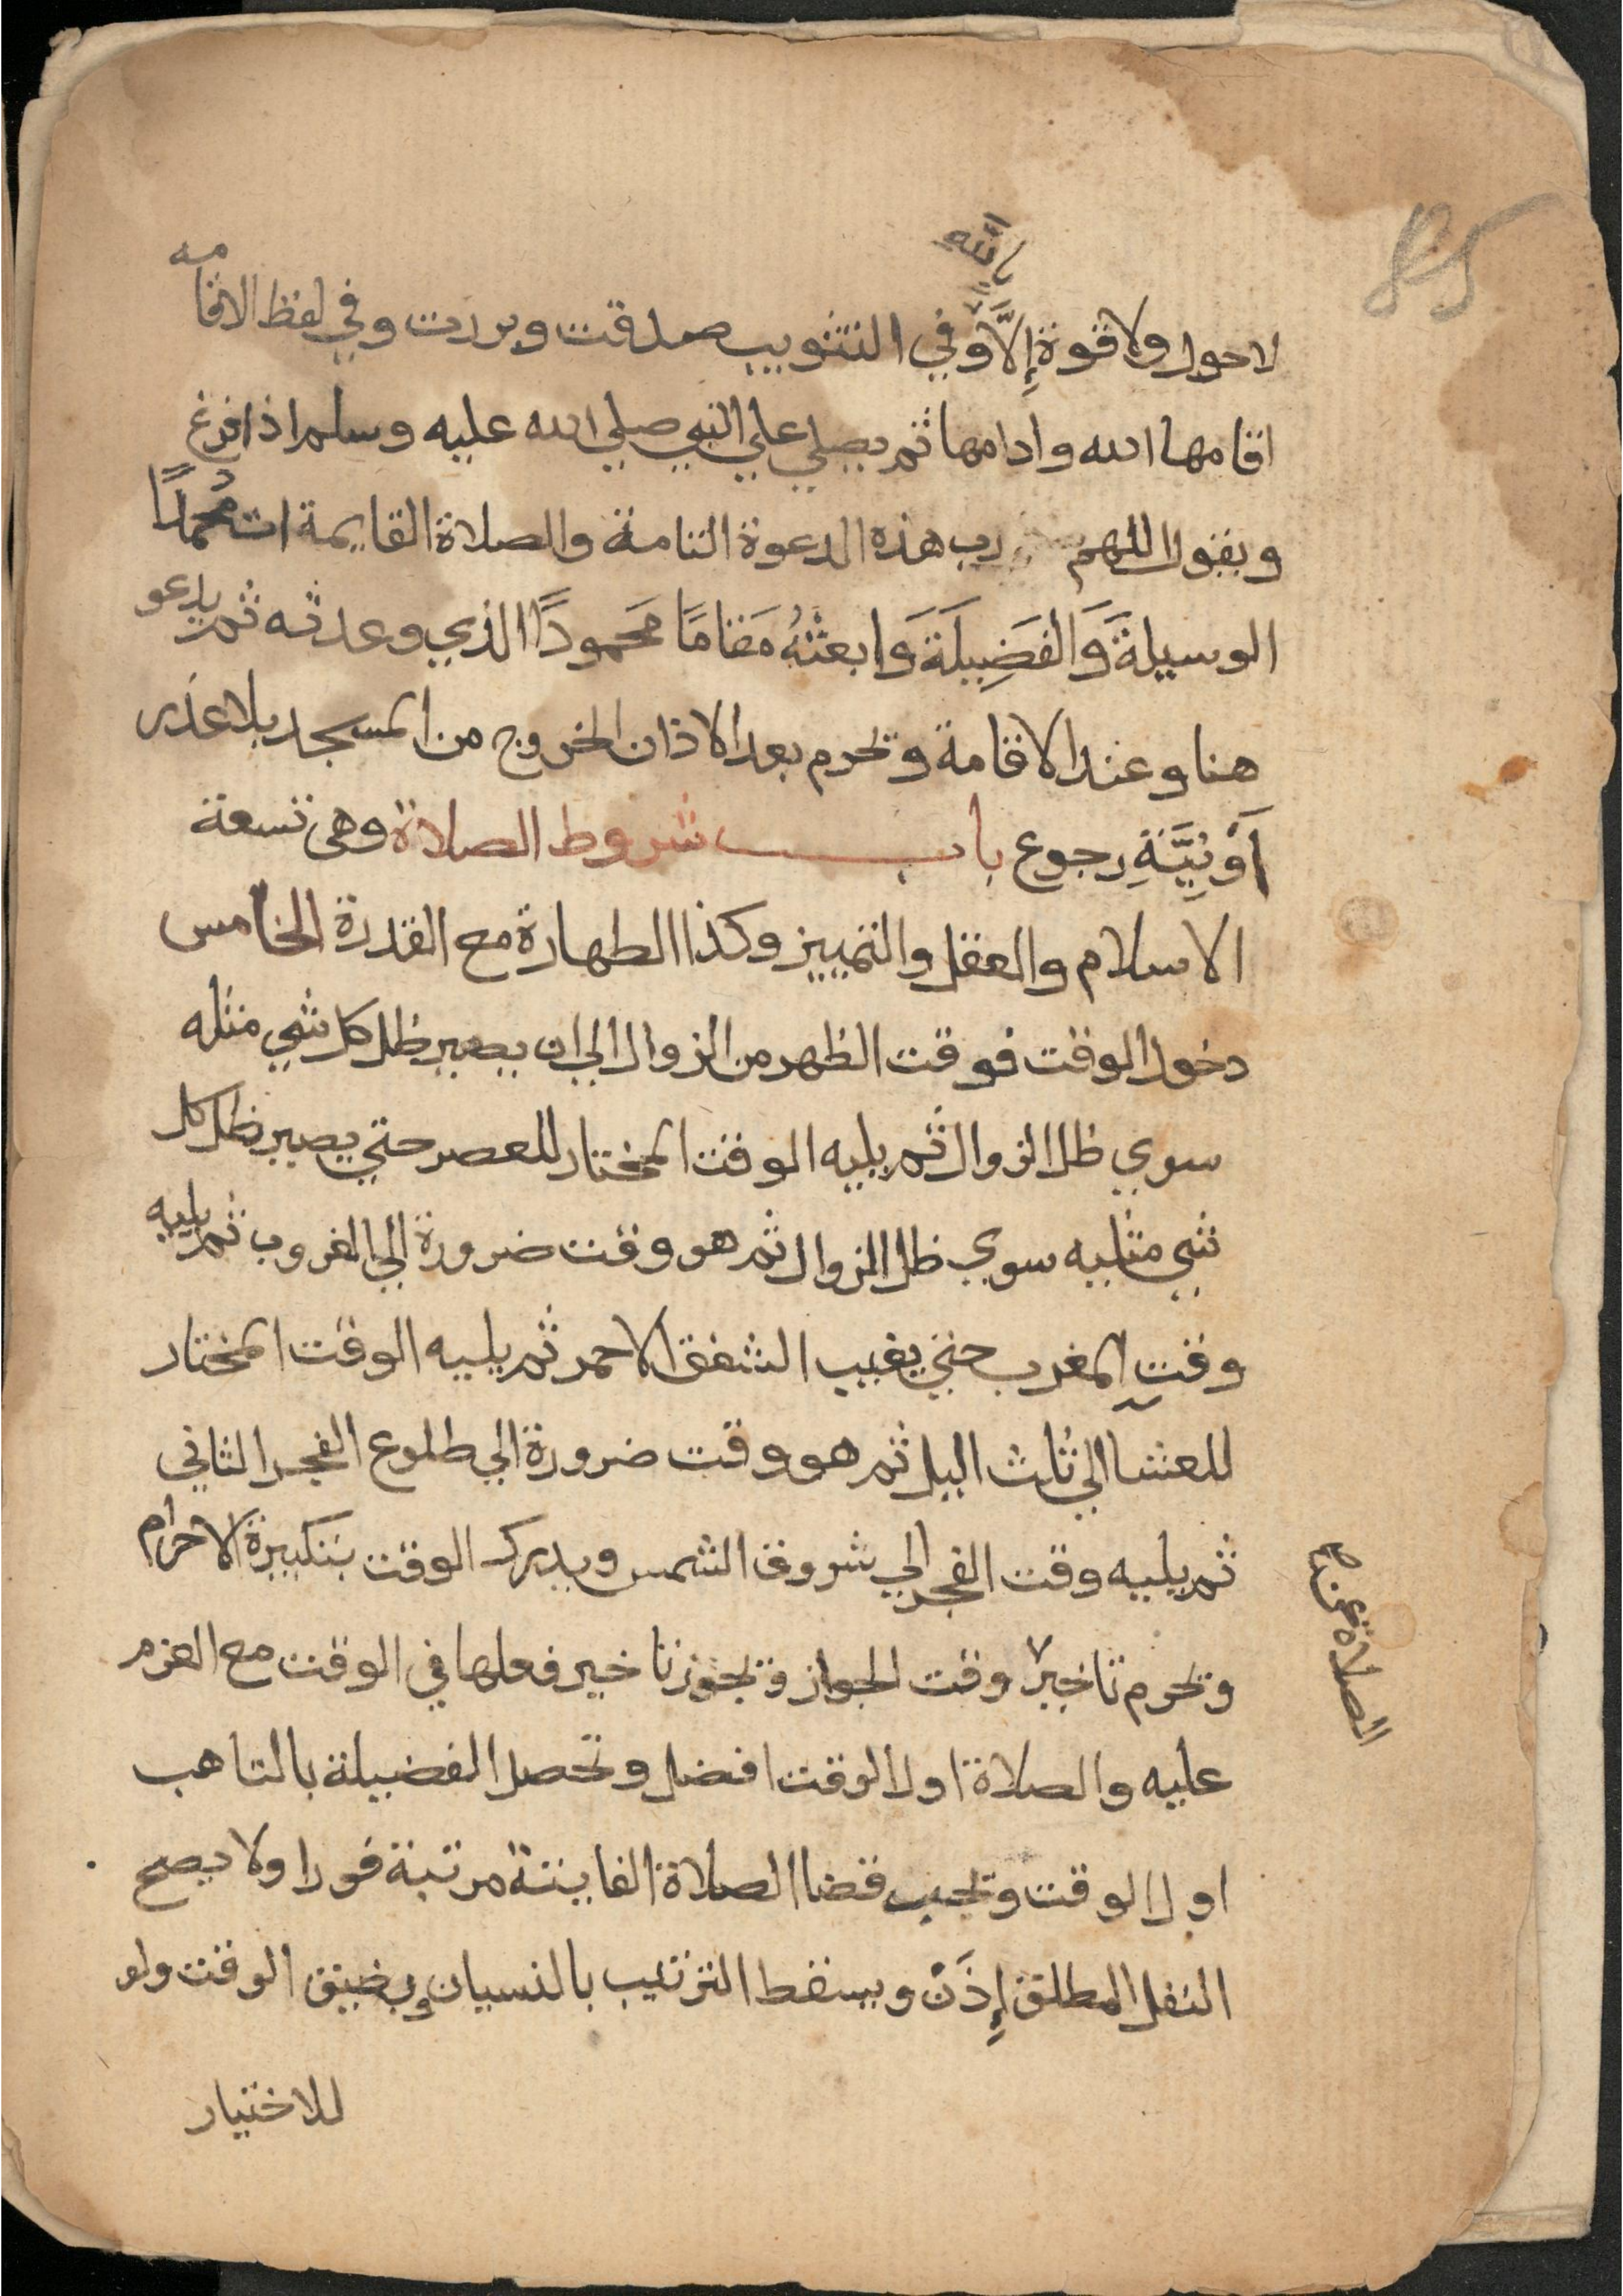 لا حول ولا قوة إِلاَّ بالله وَفي التثويب صدقت وبررت وفي لفظ الاقامه
اقامها الله وادامها ثم يصلي علي النبي صلي الله عليه وسلم اذا فرغ
ويقول اللهم رب هذه الدعوة التامة والصلاة القايمة ات مُحمدًا
الوسيلةَ وَالفَضِيلَةَ وَابعثْهُ مَقامًا مَحمودًا الذي وعدته ثم يدعو
هنا وعند الاقامة ويحرم بعد الاذان الخروج من المسجد بلا عذر
أَوْ نِيَّةِ رجوع باب شروط الصلاة وهي تسعة
الاسلام والعقل والتمييز وكذا الطهارة مع القدرة الخامس
دخول الوقت فوقت الظهر من الزوال الي ان يصير ظل كل شي مثله
سوي ظل الزوال ثم يليه الوقت المختار للعصر حتي يصير ظل كل
شي مثليه سوي ظل الزوال ثم هو وقت ضرورة الي الغروب ثم يليه
وقت المغرب حتي يغيب الشفق الاحمر ثم يليه الوقت المختار
للعشا الي ثلث اليل ثم هو وقت ضرورة الي طلوع الفجر الثاني
ثم يليه وقت الفجر الي شروق الشمس ويدرك الوقت بتكبيرة الاحرام
ويحرم تاخير وقت الجواز ويجوز تاخير فعلها في الوقت مع العزم
الصلاة عن صح
عليه والصلاة اول الوقت افضل وتحصل الفضيلة بالتاهب
اول الوقت ويجب قضا الصلاة الفايتة مرتبة فورا ولا يصح
النفل المطلق إِذَنْ ويسقط الترتيب بالنسيان وبضيق الوقت ولو
للاختيار